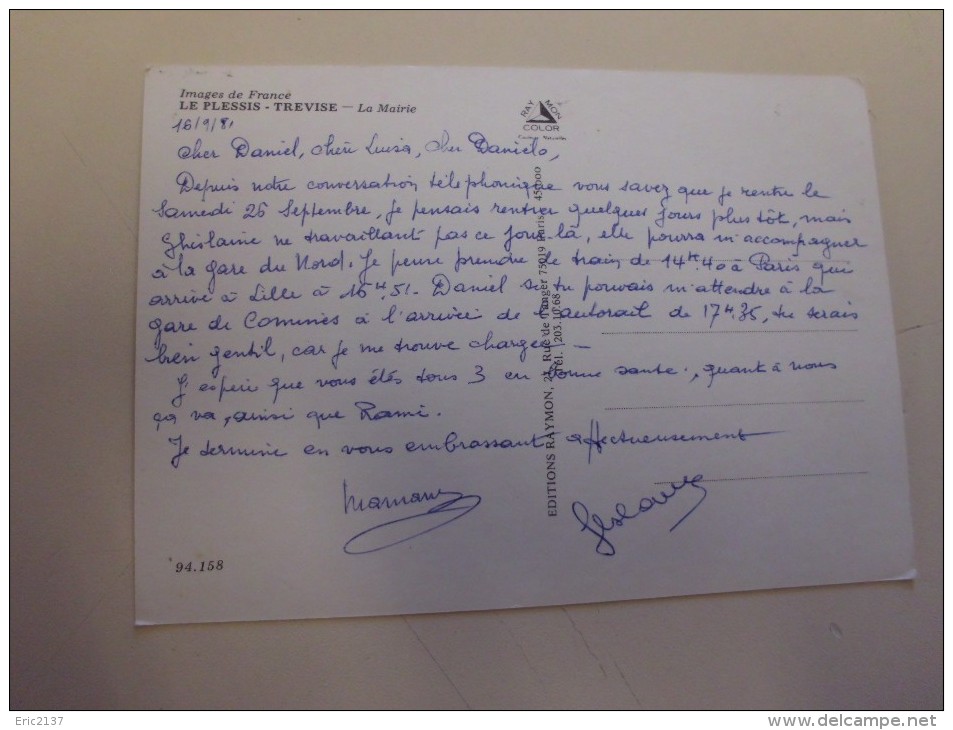 Images de France
LE PLESSIS - TREVISE — La Mairie
RAY MON
COLOR
16/9/81
Cher Daniel, chère Luisa, cher Danielo,
Depuis notre conversation téléphonique vous savez que je rentre le
Samedi 26 Septembre, je pensais rentrer quelques jours plus tôt, mais
Ghislaine ne travaillant pas ce jour-là, elle pourra m'accompagner
à la gare du Nord. Je pense prendre le train de 14H.40 à Paris qui
arrive à Lille à 16H.51. Daniel si tu pouvais m'attendre à la
gare de Comines à l'arrivée de l'autorail de 17H35, tu serais
bien gentil, car je me trouve chargée. —
J'espère que vous êtes tous 3 en bonne santé, quant à nous
ça va, ainsi que Rami.
Je termine en vous embrassant affectueusement
Maman
EDITIONS RAYMON, Rue de Tanger 75019 Paris
Tél. 203.10.68
94.158
Eric2137
www.delcampe.net